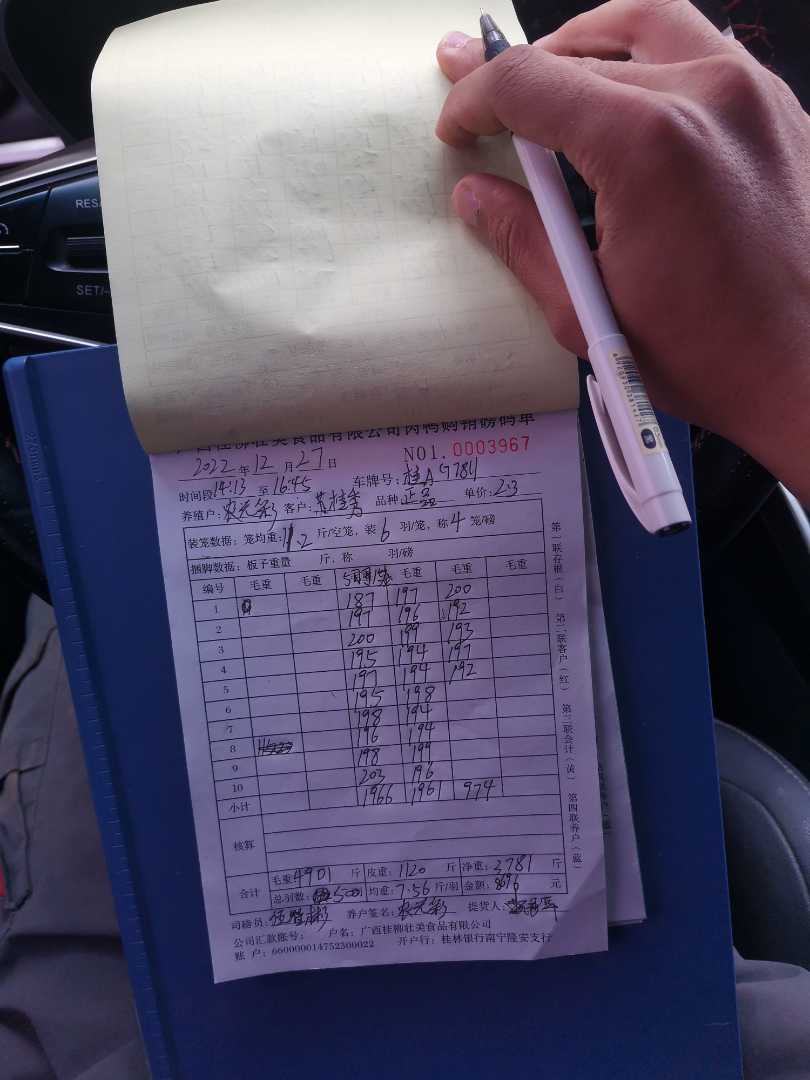 RES
SET/-
广西桂柳壮美食品有限公司肉鸭购销磅码单
2022年12月27日 NO1.0003967
时间段14:13至16:45 车牌号:桂A
养殖户: 客户:苏桂秀 品种 正品 单价:2.3
装笼数据:笼均重:11.2斤/空笼,装6羽/笼,称4笼/磅
捆脚数据:板子重量 斤,称 羽/磅
编号 毛重 毛重 毛重 毛重 毛重
1 187 197 200
2 197 196 192
3 200 199 193
4 195 194 197
5 197 194 192
6 195 198
7 198 194
8 196 194
9 198 199
10 203 196
小计 1966 1961 974
核算
合计 毛重4901斤 皮重:1120斤 净重:3781斤
总羽数:500 均重:7.56斤/羽 金额:8696元
司磅员: 养户签名: 提货人:
公司汇款账号: 户名:广西桂柳壮美食品有限公司
账 户:660000014752300022 开户行:桂林银行南宁隆安支行
第一联存根(白) 第二联客户(红) 第三联会计(黄) 第四联养户(蓝)